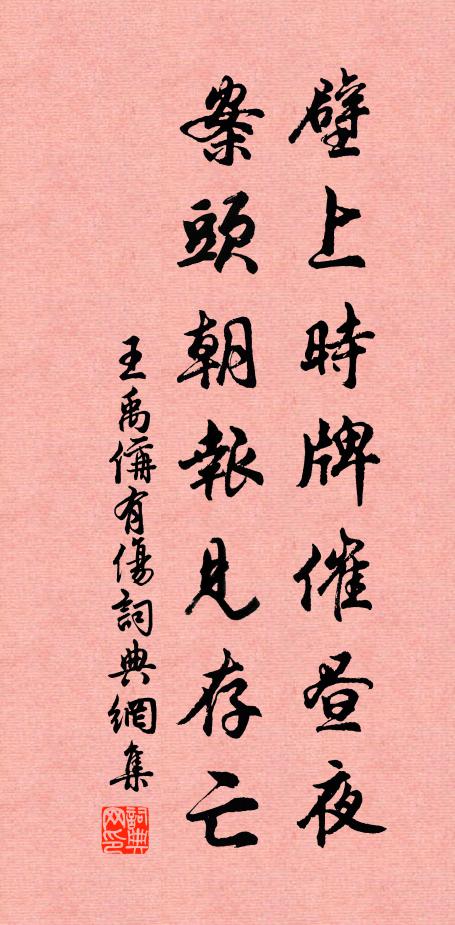 壁上時牌催昼夜
案頭朝報見存亡
王禹偁有傷詞典網集
詞典網印